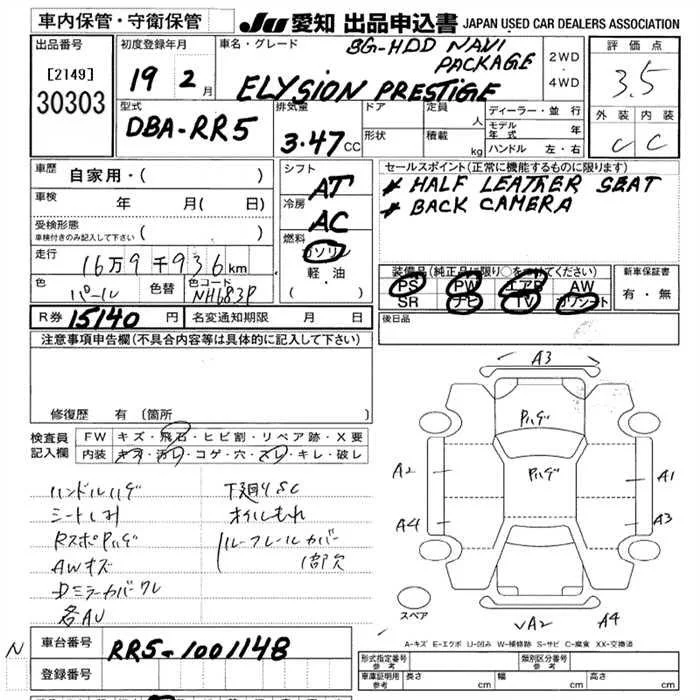 車内保管・守衛保管
JU 愛知 出品申込書 JAPAN USED CAR DEALERS ASSOCIATION
出品番号
[2149]
30303
初度登録年月
19 2月
車名・グレード
8G-HDD NAVI
PACKAGE
ELYSION PRESTIGE
2WD
4WD
評価点
3.5
外装 内装
C C
型式
DBA-RR5
排気量
3.47CC
ドア
形状
定員 人
積載 kg
ディーラー・並行
モデル年式 年
ハンドル 左・右
車歴
自家用・( )
車検
年 月( 日)
受検形態
車検付きのみ記入して下さい
走行
16万9千936km
色
パール
色替
色コード
NH683P
シフト
AT
冷房
AC
燃料
ガソリン
軽・油
セールスポイント(正常に機能するものに限ります)
* HALF LEATHER SEAT
* BACK CAMERA
装備品(純正品に限り○をつけてください)
PS PW エアB AW
SR ナビ TV カワシート
新車保証書
有・無
R券 15140 円
名変通知期限 月 日
後日品
注意事項申告欄(不具合内容等は具体的に記入して下さい)
修復歴 有(箇所
検査員
記入欄
FW キズ・飛石・ヒビ割・リペア跡・X要
内装 キズ・汚レ・コゲ・穴・スレ・キレ・破レ
ハンドルハゲ
シートシミ
RスポPハゲ
AWキズ
Dミラーカバーワレ
各AU
下廻りSC
オイルもれ
ルーフレールカバー
1部欠
A3
Pハゲ
Pハゲ
A2
A4
A1
A3
VA2
A4
スペア
A-キズ E-エクボ U-凹み W-補修跡 S-サビ C-腐食 XX-交換済
N
車台番号
RR5-1001148
登録番号
形式指定番号
参考
類別区分番号
参考
車庫証明用
参考
長さ cm
幅 cm
高さ cm